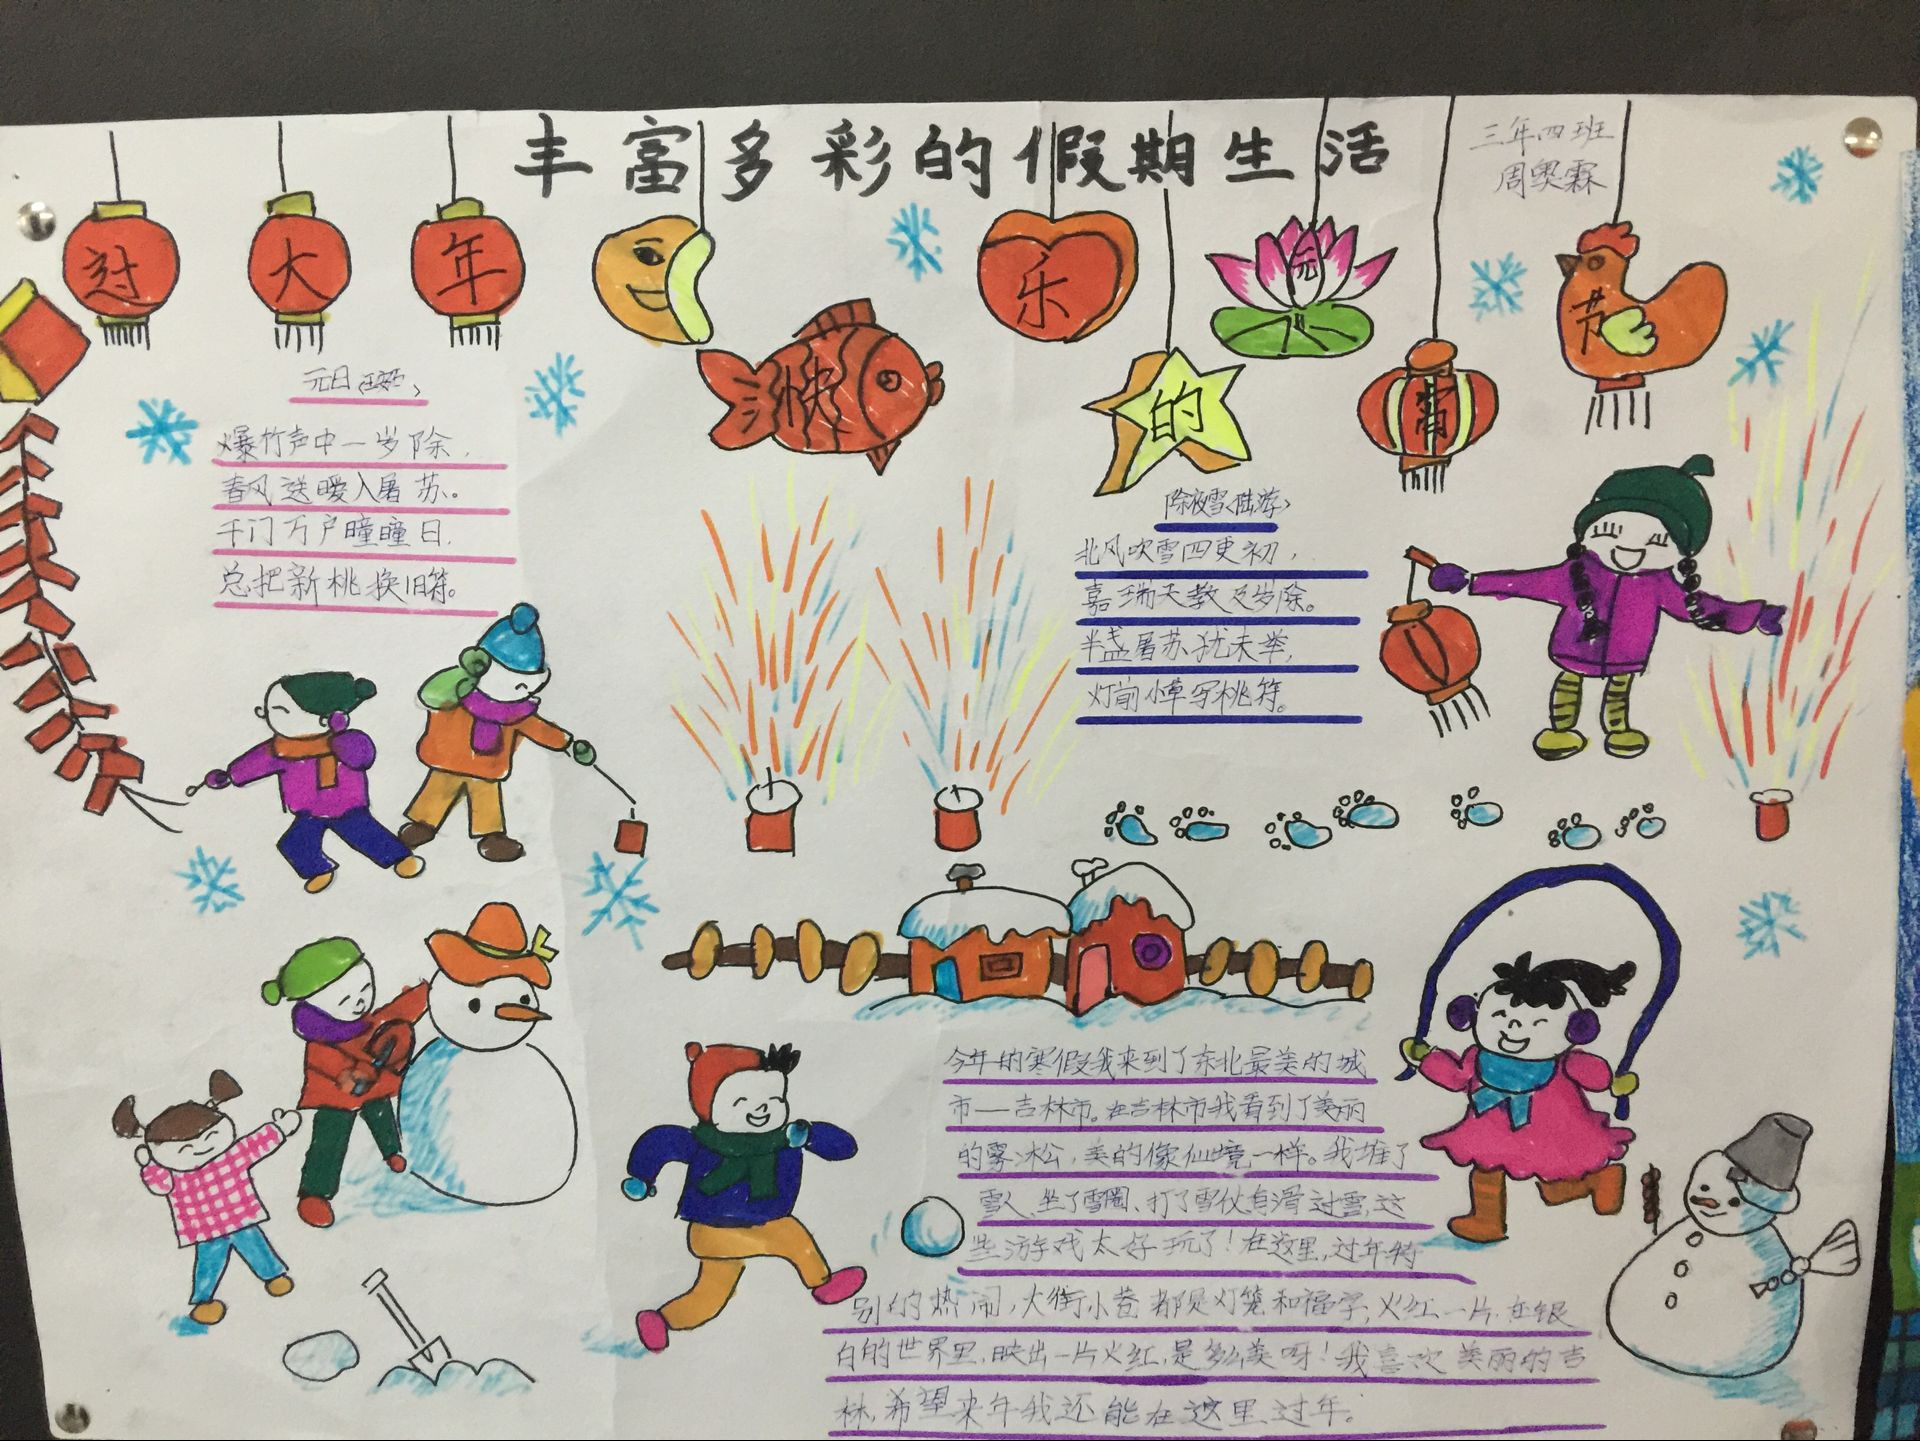 丰富多彩的假期生活
三年四班
周奥霖
过大年
快乐的元宵节
元日
爆竹声中一岁除,
春风送暖入屠苏。
千门万户曈曈日,
总把新桃换旧符。
除夜雪<陆游>
北风吹雪四更初,
嘉瑞天教及岁除。
半盏屠苏犹未举,
灯前小草写桃符。
今年的寒假我来到了东北最美的城
市——吉林市。在吉林市我看到了美丽
的雾冰松,美的像仙境一样。我堆了
雪人、坐了雪圈、打了雪仗、滑过雪,这
些游戏太好玩了!在这里,过年特
别的热闹,大街小巷都是灯笼和福字,火红一片,在银
白的世界里,映出一片火红,是多么美呀!我喜欢美丽的吉
林,希望来年我还能在这里过年。